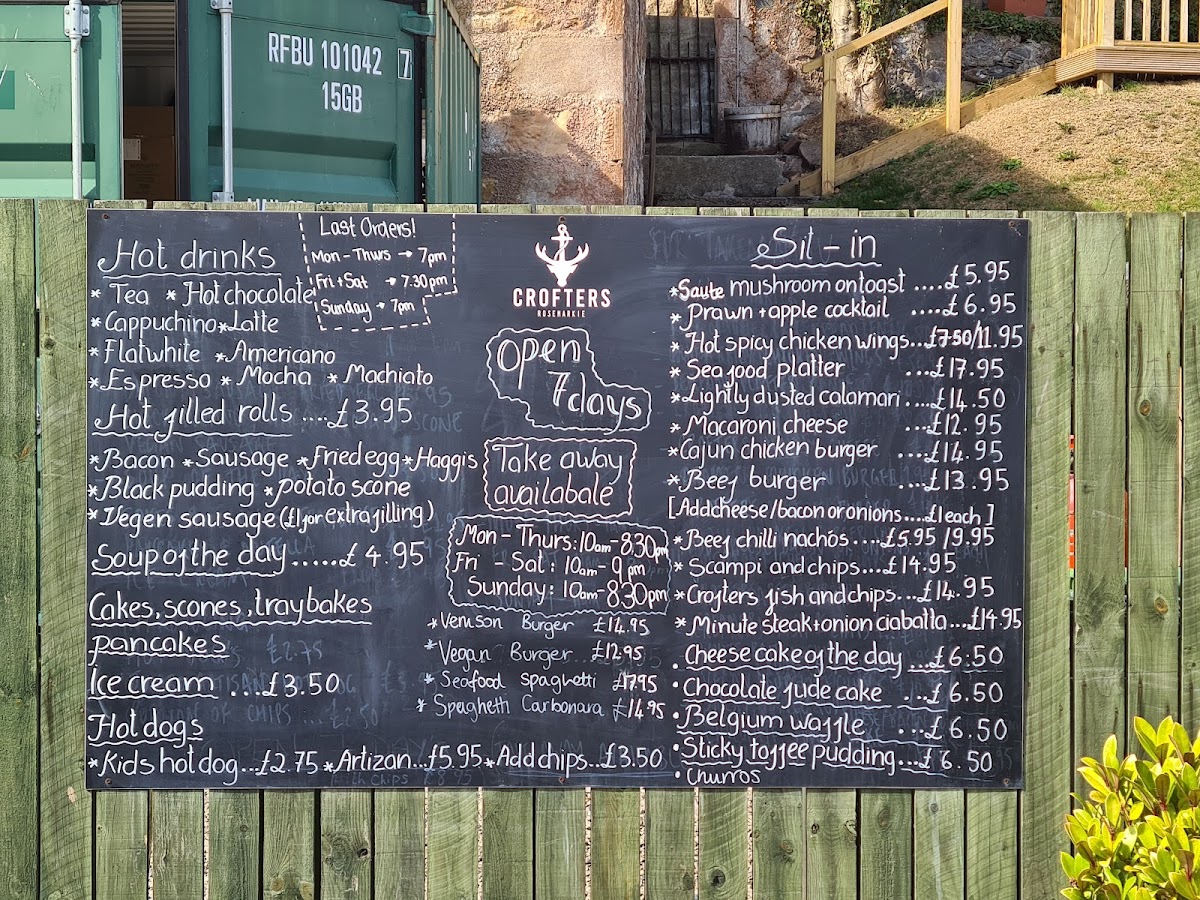 RFBU 101042 7
15GB
Hot drinks
* Tea * Hot chocolate
* Cappuchino * Latte
* Flatwhite * Americano
* Espresso * Mocha * Machiato
Hot filled rolls ....£3.95
* Bacon * Sausage * Fried egg * Haggis
* Black pudding * potato scone
* Vegen sausage (£1 for extra filling)
Soup of the day .....£4.95
Cakes, scones, traybakes
pancakes
Ice cream ...£3.50
Hot dogs
* Kids hot dog...£2.75 * Artizan...£5.95 * Add chips...£3.50
Last Orders!
Mon - Thurs → 7pm
Fri + Sat → 7.30pm
Sunday → 7pm
CROFTERS
ROSEMARKIE
Open
7days
Take away
availabale
Mon - Thurs: 10am - 8.30pm
Fri - Sat: 10am - 9pm
Sunday: 10am - 8.30pm
* Venison Burger £14.95
* Vegan Burger £12.95
* Seafood spaghetti £17.95
* Spaghetti Carbonara £14.95
Sit - in
* Saute mushroom on toast ....£5.95
* Prawn + apple cocktail .....£6.95
* Hot spicy chicken wings...£7.50/11.95
* Sea food platter ...£17.95
* Lightly dusted calamari....£14.50
* Macaroni cheese ...£12.95
* Cajun chicken burger ...£14.95
* Beef burger ...£13.95
[Add cheese/bacon or onions....£1 each]
* Beef chilli nachos....£5.95/9.95
* Scampi and chips...£14.95
* Crofters fish and chips...£14.95
* Minute steak + onion ciabatta...£14.95
. Cheese cake of the day ...£6.50
. Chocolate fude cake ...£6.50
• Belgium waffle ...£6.50
• Sticky toffee pudding...£6.50
• Churros